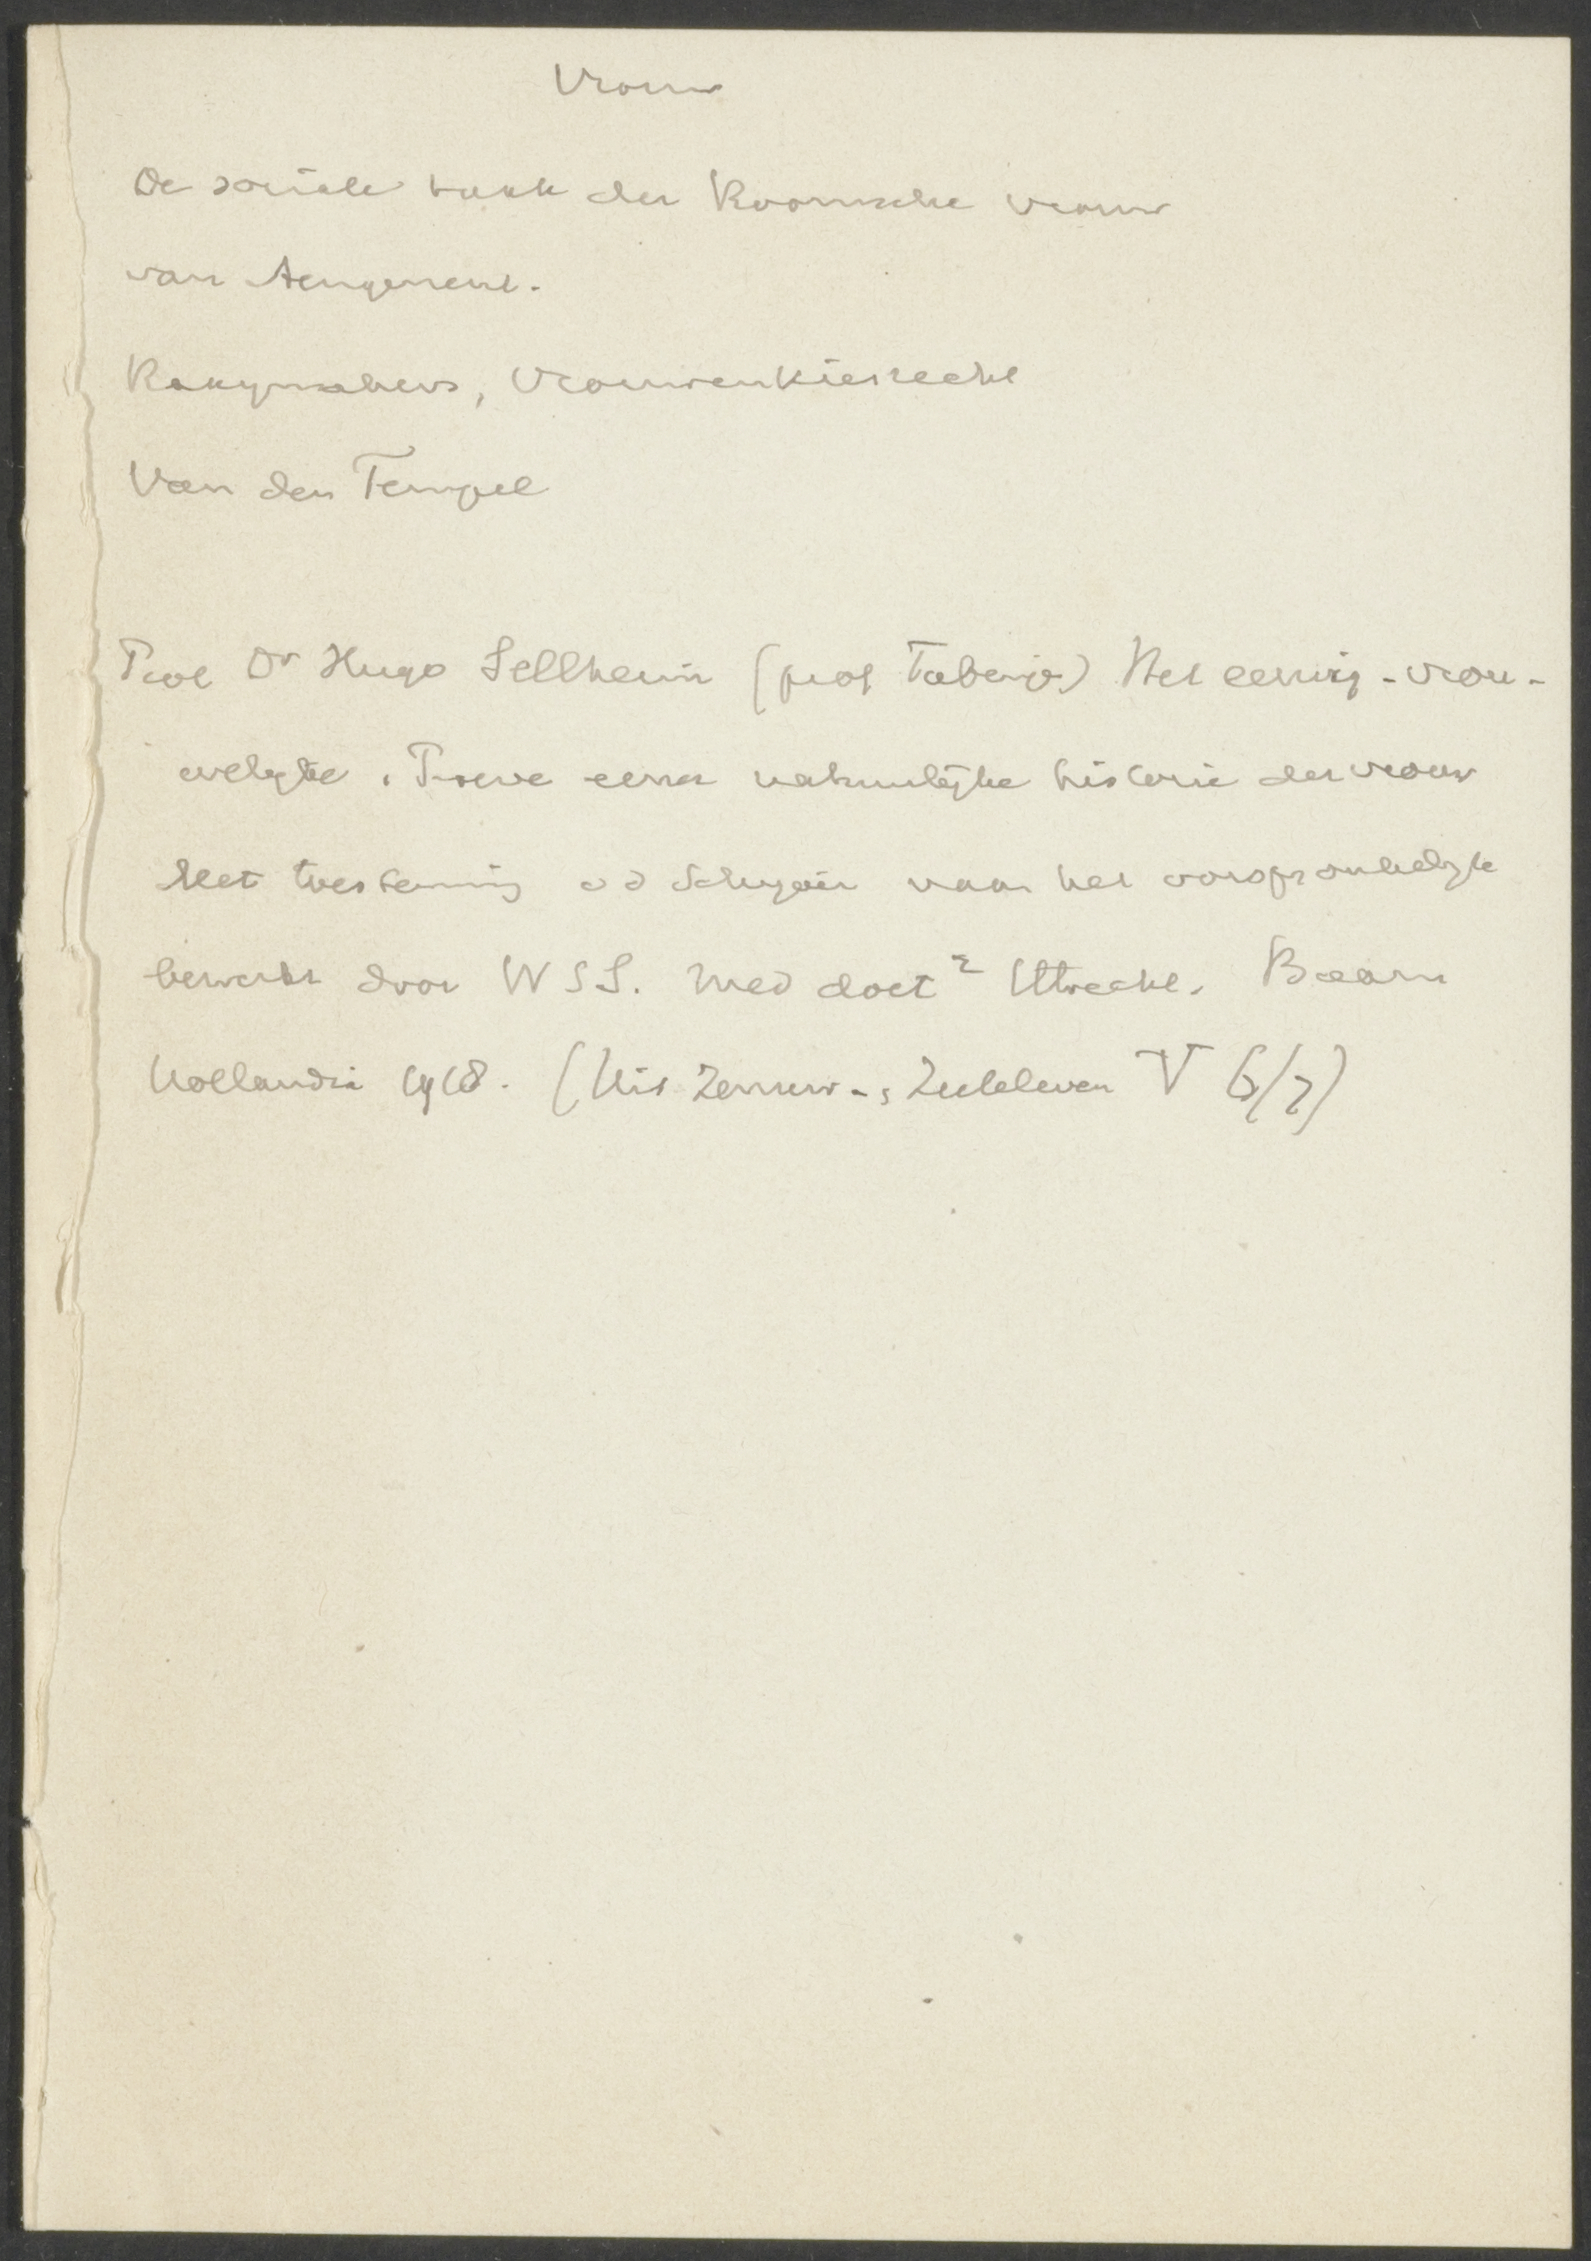 Vrouw
De sociale taak der Roomsche vrouw
van Aengenent.
Ramynahers, Vrouwenkiesrecht
Van den Tempel
Prof Dr Hugo Sellheim (prof Tubing) Het eeuwig-vrou-
welijke. Proeve eener natuurlijke historie der vrouw
Met toestemming v d Schrijver naar het oorspronkelijke
bewerkt door W S S. Med doct2 Utrecht. Baarn
Hollandia 1918. (Uit Zenuw- & Zieleleven V 6/7)